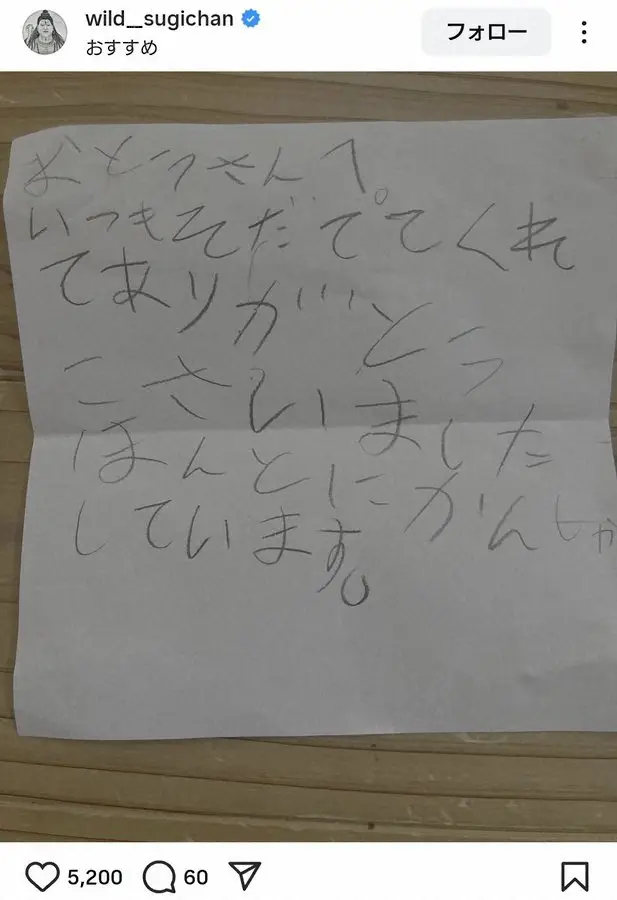 wild__sugichan
おすすめ
フォロー
おとうさんへ。
いつもそだててくれ
てありがとう
こさいました
ほんとにかんしゃ
しています。
5,200
60